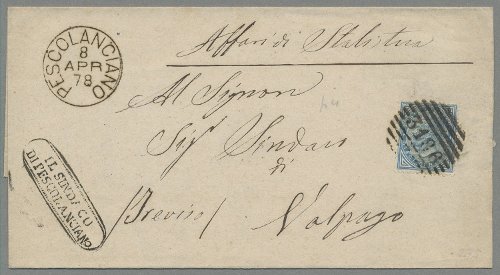 PESCOLANCIANO
8
APR
78
Affari di Statistica
Al Signor
Sig.r Sindaco
di
(Treviso) Volpago
IL SINDACO
DI PESCOLANCIANO